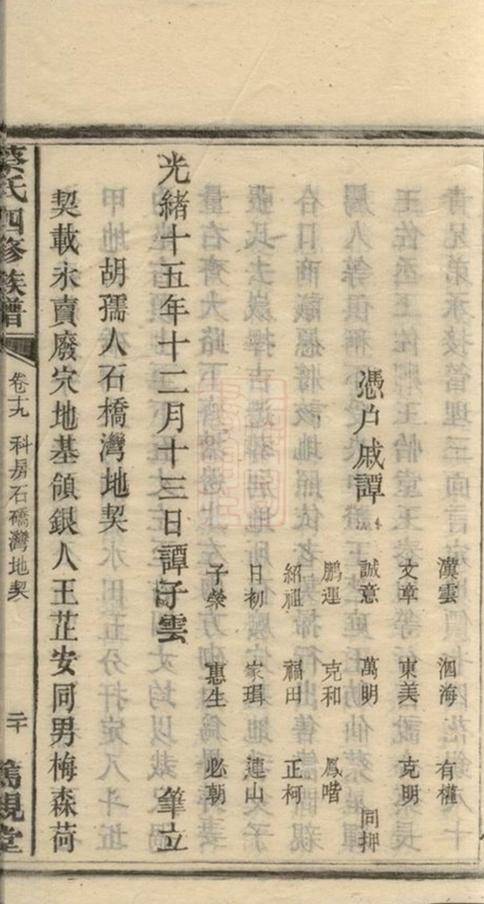 憑戶戚譚
漢雲 泗海 有權
文章 東美 克明
誠意 萬明 同押
鵬運 克和 鳳喈
紹祖 福田 正柯
日初 家珥 連山
子榮 惠生 必朝
光緒十五年十二月十三日譚子雲 筆立
胡孺人石橋灣地契
契載永賣廢穴地基領銀人王芷安同男梅森荷
蔡氏四修族譜
卷十九 科房石橋灣地契
二十
篤親堂